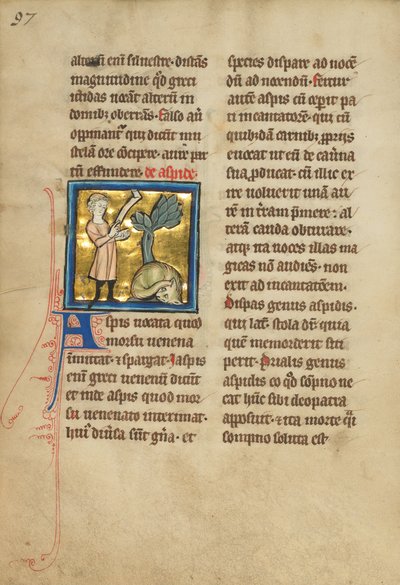 97
alterum enim siluestre· distans
magnitudine quod greci
ictidas uocant alterum in
domibus oberrans· Falso autem
oppinantur qui dicunt mu
stelam ore concipere· aure par
tum effundere· de aspide·
Aspis uocata quod
morsu uenena
inmittat et spargat· Iaspis
enim greci uenenum dicunt
et inde aspis quod mor
su uenenato interimat·
huius diuersa sunt genera· et
species dispare ad nocen
dum ad nocendum· Fertur
autem aspis cum ceperit pa
ti incantatorem· qui eum
quibusdam carnibus propriis
euocat ut eum de cauerna
sua producat· cum illic exi
re noluerit unam au
rem in terram premere· al
teram cauda obturare·
atque ita uoces illas ma
gicas non audiens· non
exit ad incantatem·
Dispas genus aspidis·
qui latine stola dicitur quia
quem memorderit siti
perit· Prialis genus
aspidis eo quod sompno ne
cat hanc sibi cleopatra
apposuit· et ita morte quasi
sompno soluta est